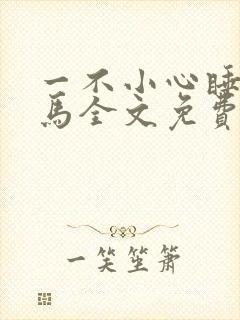 一不小心睡
马全文免费
一笑笙箫